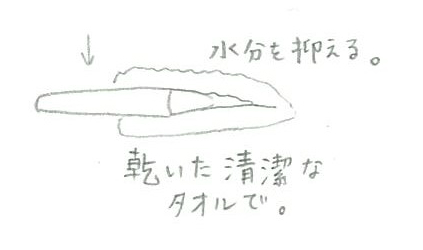 水分を抑える。
乾いた清潔な
タオルで。